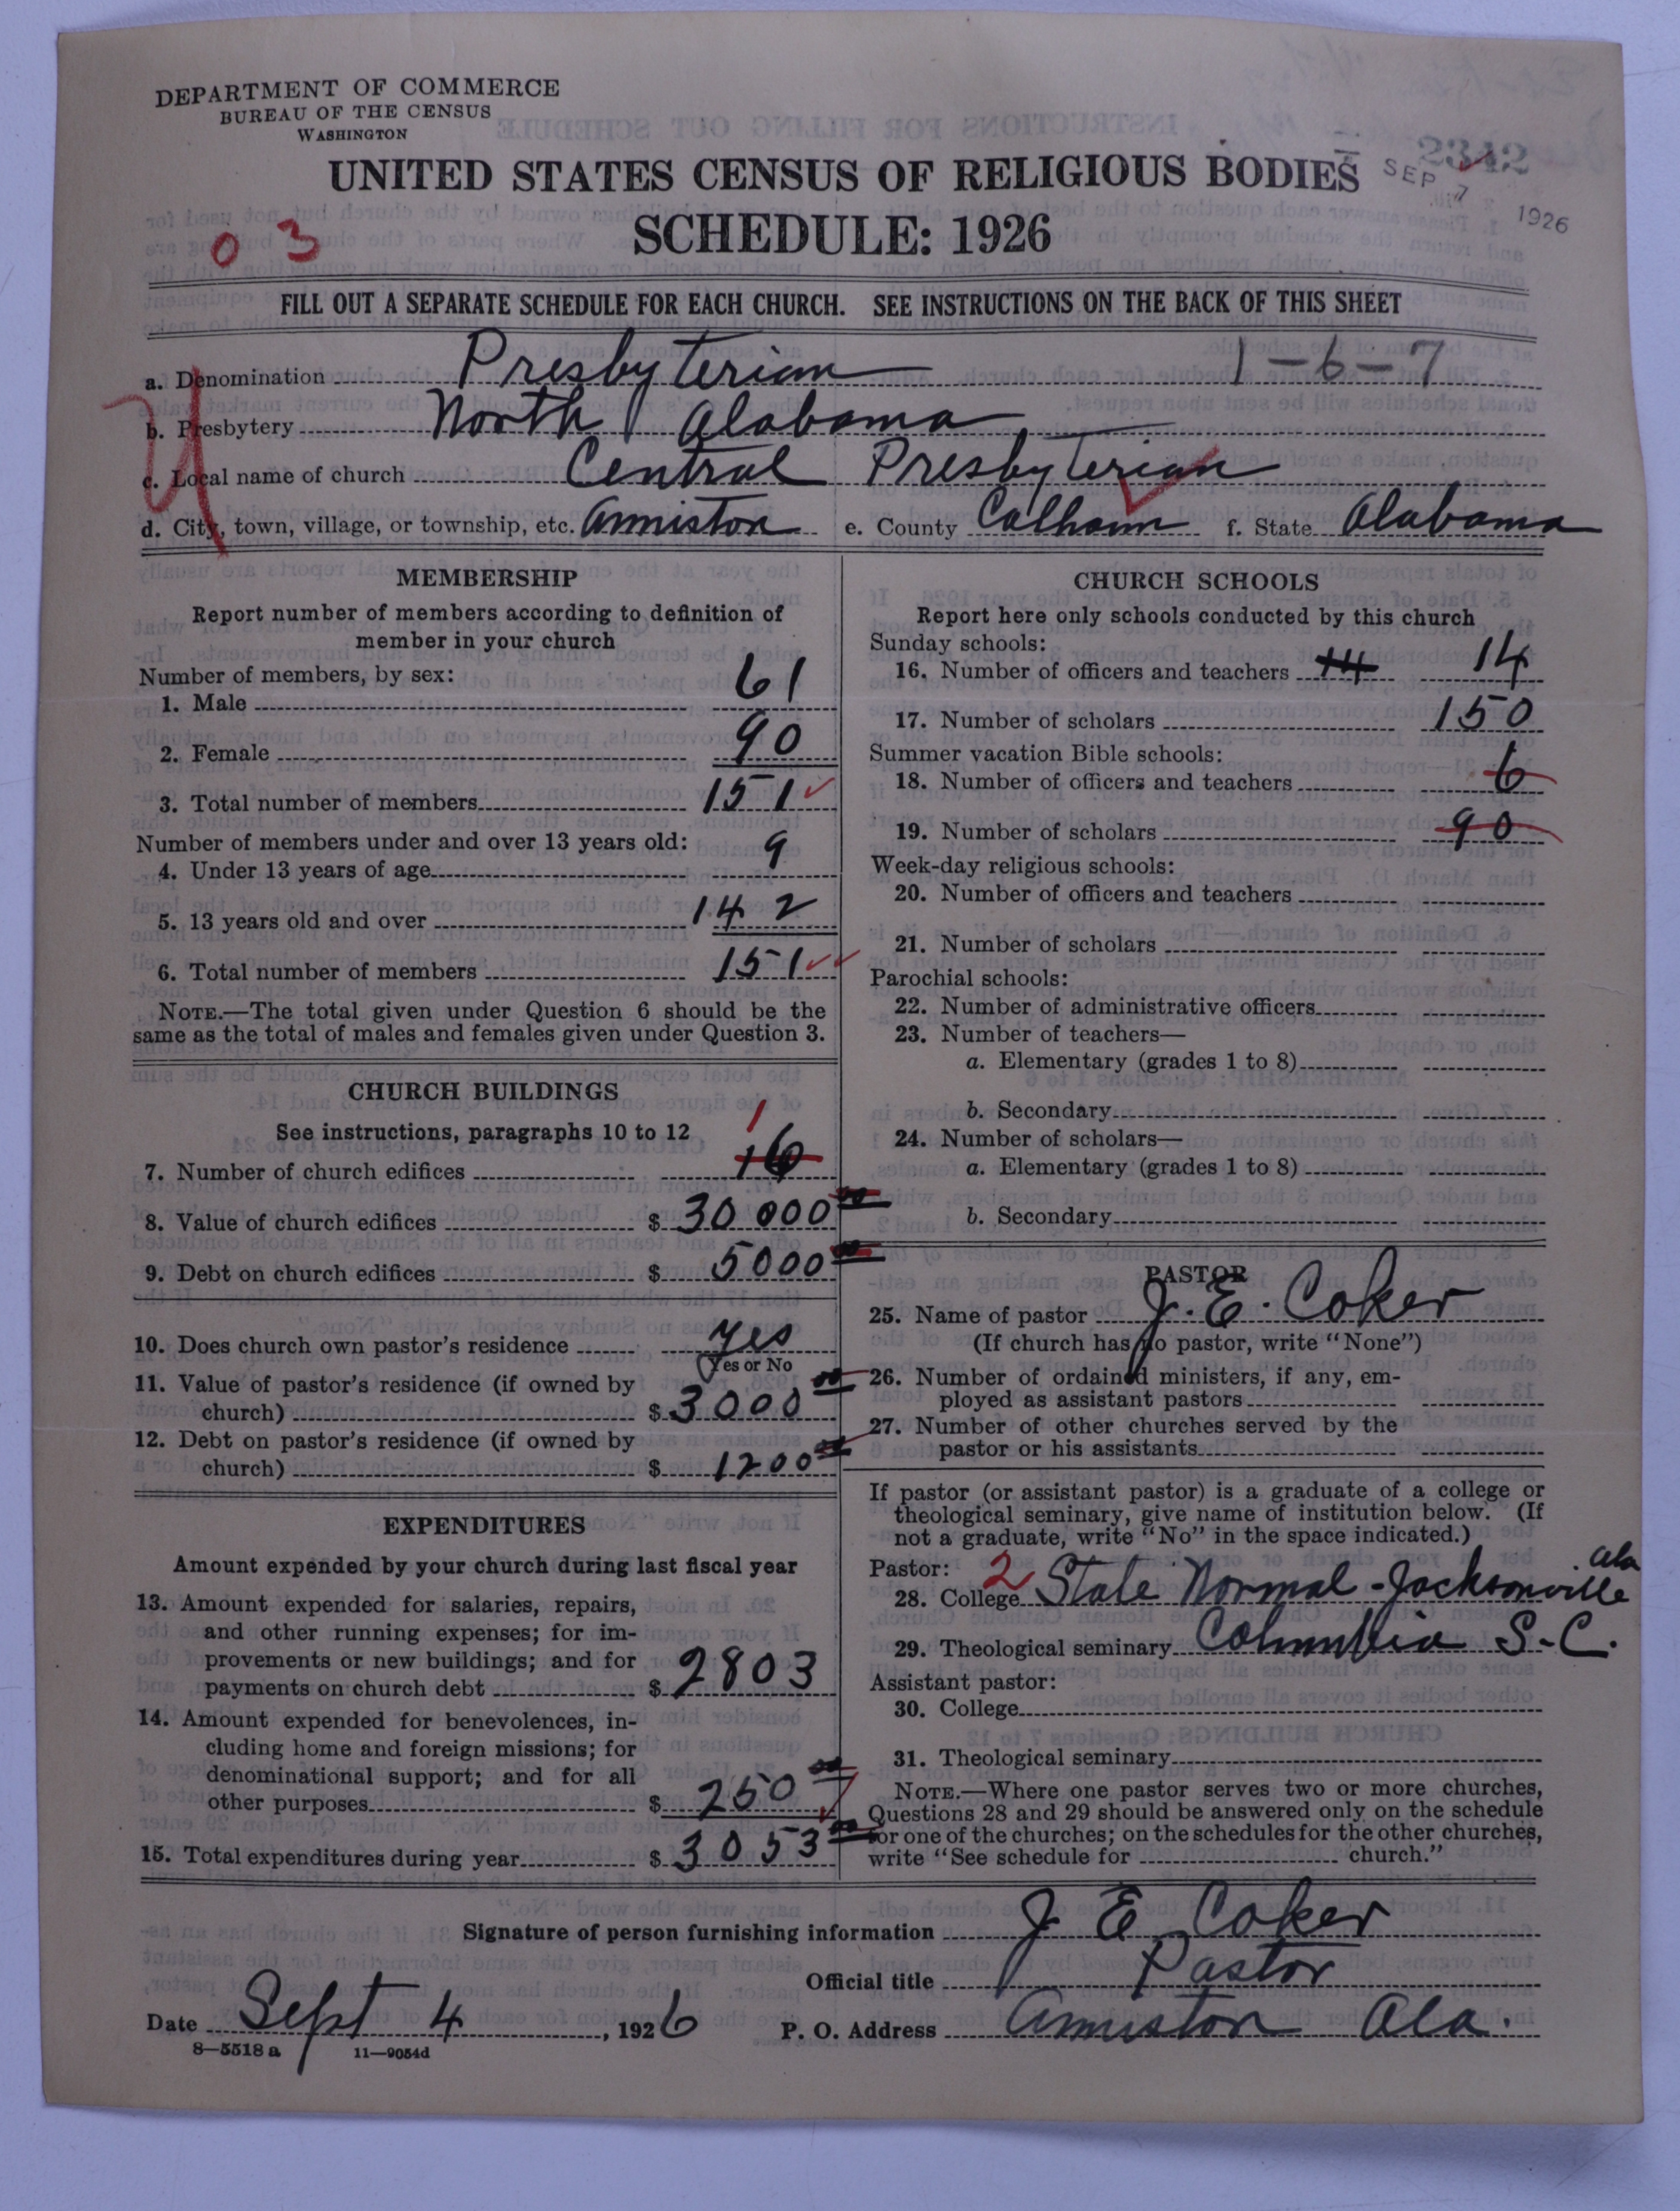 DEPARTMENT OF COMMERCE
BUREAU OF THE CENSUS
WASHINGTON
UNITED STATES CENSUS OF RELIGIOUS BODIES
2342
SEP 7 1926
SCHEDULE: 1926
0 3
FILL OUT A SEPARATE SCHEDULE FOR EACH CHURCH. SEE INSTRUCTIONS ON THE BACK OF THIS SHEET
a. Denomination Presbyterian 1-6-7
b. Presbytery North Alabama
c. Local name of church Central Presbyterian
d. City, town, village, or township, etc. Anniston e. County Calhoun f. State Alabama
MEMBERSHIP
Report number of members according to definition of
member in your church
Number of members, by sex:
1. Male 61
2. Female 90
3. Total number of members 151
Number of members under and over 13 years old:
4. Under 13 years of age 9
5. 13 years old and over 142
6. Total number of members 151
NOTE.—The total given under Question 6 should be the
same as the total of males and females given under Question 3.
CHURCH BUILDINGS
See instructions, paragraphs 10 to 12
1
7. Number of church edifices 16
8. Value of church edifices $ 30000 00
9. Debt on church edifices $ 5000 00
10. Does church own pastor's residence yes
Yes or No
11. Value of pastor's residence (if owned by
church) $ 3000 00
12. Debt on pastor's residence (if owned by
church) $ 1200 00
EXPENDITURES
Amount expended by your church during last fiscal year
13. Amount expended for salaries, repairs,
and other running expenses; for im-
provements or new buildings; and for
payments on church debt $ 2803
14. Amount expended for benevolences, in-
cluding home and foreign missions; for
denominational support; and for all
other purposes $ 250 00
15. Total expenditures during year $ 3053 00
CHURCH SCHOOLS
Report here only schools conducted by this church
Sunday schools:
16. Number of officers and teachers 14 14
17. Number of scholars 150
Summer vacation Bible schools:
18. Number of officers and teachers 6
19. Number of scholars 90
Week-day religious schools:
20. Number of officers and teachers
21. Number of scholars
Parochial schools:
22. Number of administrative officers
23. Number of teachers—
a. Elementary (grades 1 to 8)
b. Secondary
24. Number of scholars—
a. Elementary (grades 1 to 8)
b. Secondary
PASTOR
25. Name of pastor J. E. Coker
(If church has no pastor, write "None")
26. Number of ordained ministers, if any, em-
ployed as assistant pastors
27. Number of other churches served by the
pastor or his assistants
If pastor (or assistant pastor) is a graduate of a college or
theological seminary, give name of institution below. (If
not a graduate, write "No" in the space indicated.)
Pastor: 2 Ala
28. College State Normal - Jacksonville
29. Theological seminary Columbia S.C.
Assistant pastor:
30. College
31. Theological seminary
NOTE.—Where one pastor serves two or more churches,
Questions 28 and 29 should be answered only on the schedule
for one of the churches; on the schedules for the other churches,
write "See schedule for church."
Signature of person furnishing information J E Coker
Official title Pastor
Date Sept 4, 1926 P. O. Address Anniston Ala.
8—5518 a 11—9054d